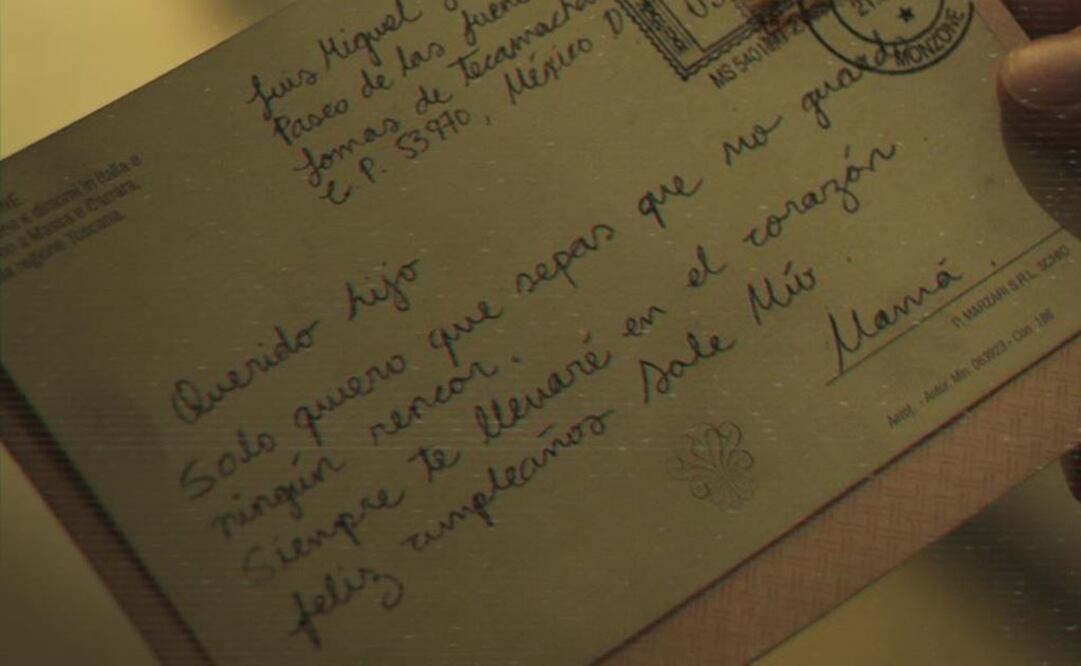 Luis Miguel
Paseo de las fuen
Lomas de Tecamacha
C.P. 53970, México D
MS 540
MONZONE
NE
in Italia e
a Massa e Carrara,
regione Toscana.
Querido hijo
Solo quiero que sepas que no guardo
ningún rencor.
Siempre te llevaré en el corazón
feliz cumpleaños Sole Mío.
Mamá.
P. MARZARI S.R.L. SCHIO
Aerof. - Autor. Min. 063923 - Con. 186